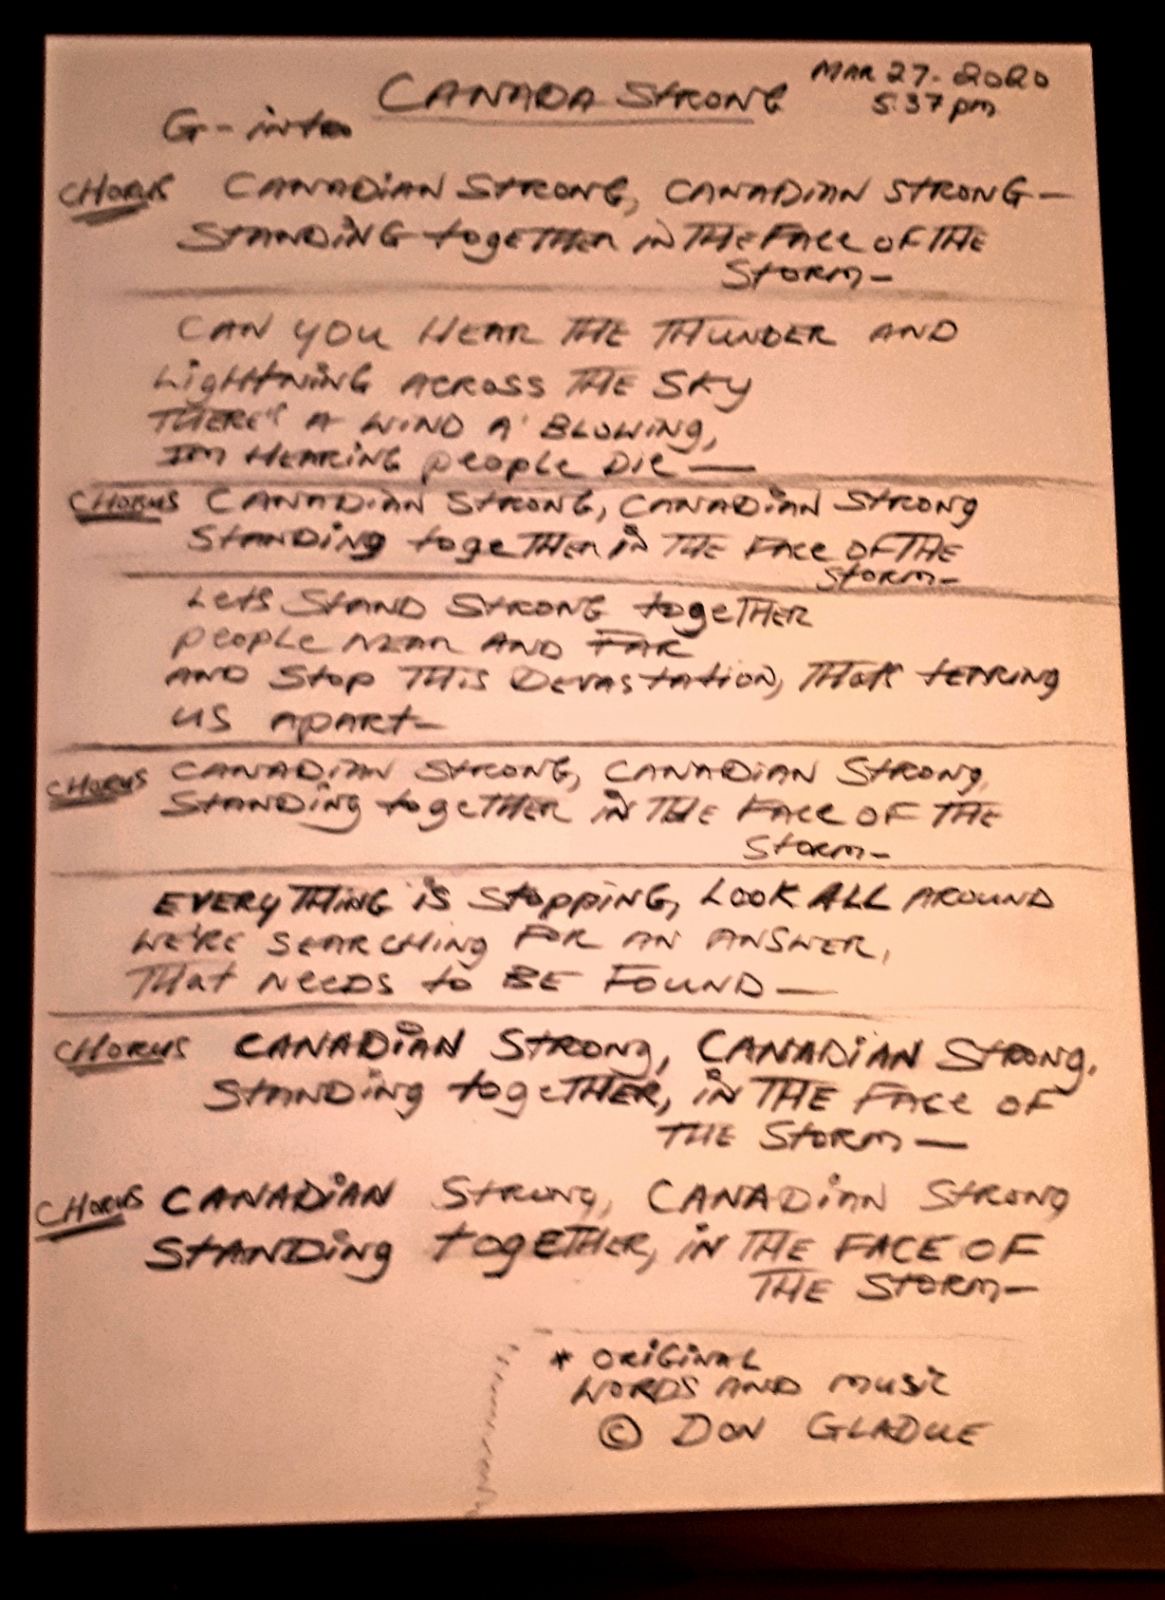 CANADA STRONG
MAR 27-2020
5:37 pm
G-intro
CHORUS CANADIAN STRONG, CANADIAN STRONG—
STANDING together IN THE FACE OF THE
STORM—
CAN YOU HEAR THE THUNDER AND
LIGHTNING ACROSS THE SKY
THERE'S A WIND A' BLOWING,
IM HEARING people DIE—
CHORUS CANADIAN STRONG, CANADIAN STRONG
STANDING together IN THE FACE OF THE
STORM—
LETS STAND STRONG together
people NEAR AND FAR
AND STOP THIS DEVASTATION, THATS TEARING
US APART—
CHORUS CANADIAN STRONG, CANADIAN STRONG,
STANDING together IN THE FACE OF THE
STORM—
EVERYTHING IS STOPPING, LOOK ALL AROUND
WE'RE SEARCHING FOR AN ANSWER,
THAT NEEDS TO BE FOUND—
CHORUS CANADIAN STRONG, CANADIAN STRONG,
STANDING together, IN THE FACE OF
THE STORM—
CHORUS CANADIAN STRONG, CANADIAN STRONG
STANDING together, IN THE FACE OF
THE STORM—
* ORIGINAL
WORDS AND MUSIC
© DON GLADUE